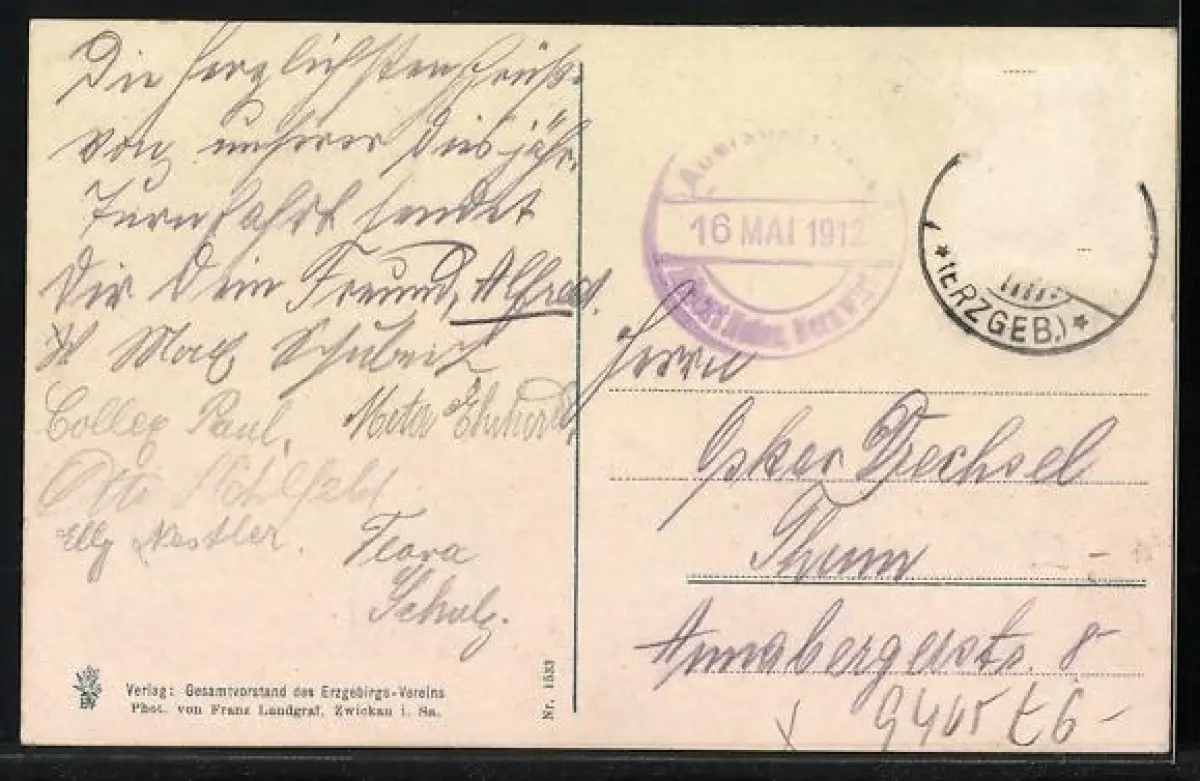 Die herzlichsten Grüße
von unserer diesjähr.
Turnfahrt sendet
Dir Dein Freund, Alfred.
Max Schubert
Paul. Meta
Otto
Elly Nestler.
Flora
Schulz.
Verlag: Gesamtvorstand des Erzgebirgs-Vereins
Phot. von Franz Landgraf, Zwickau i. Sa.
Nr. 1533
16 MAI 1912
* (ERZGEB.) *
Herrn
Oskar Drechsel
Thum
Annabergerstr. 8